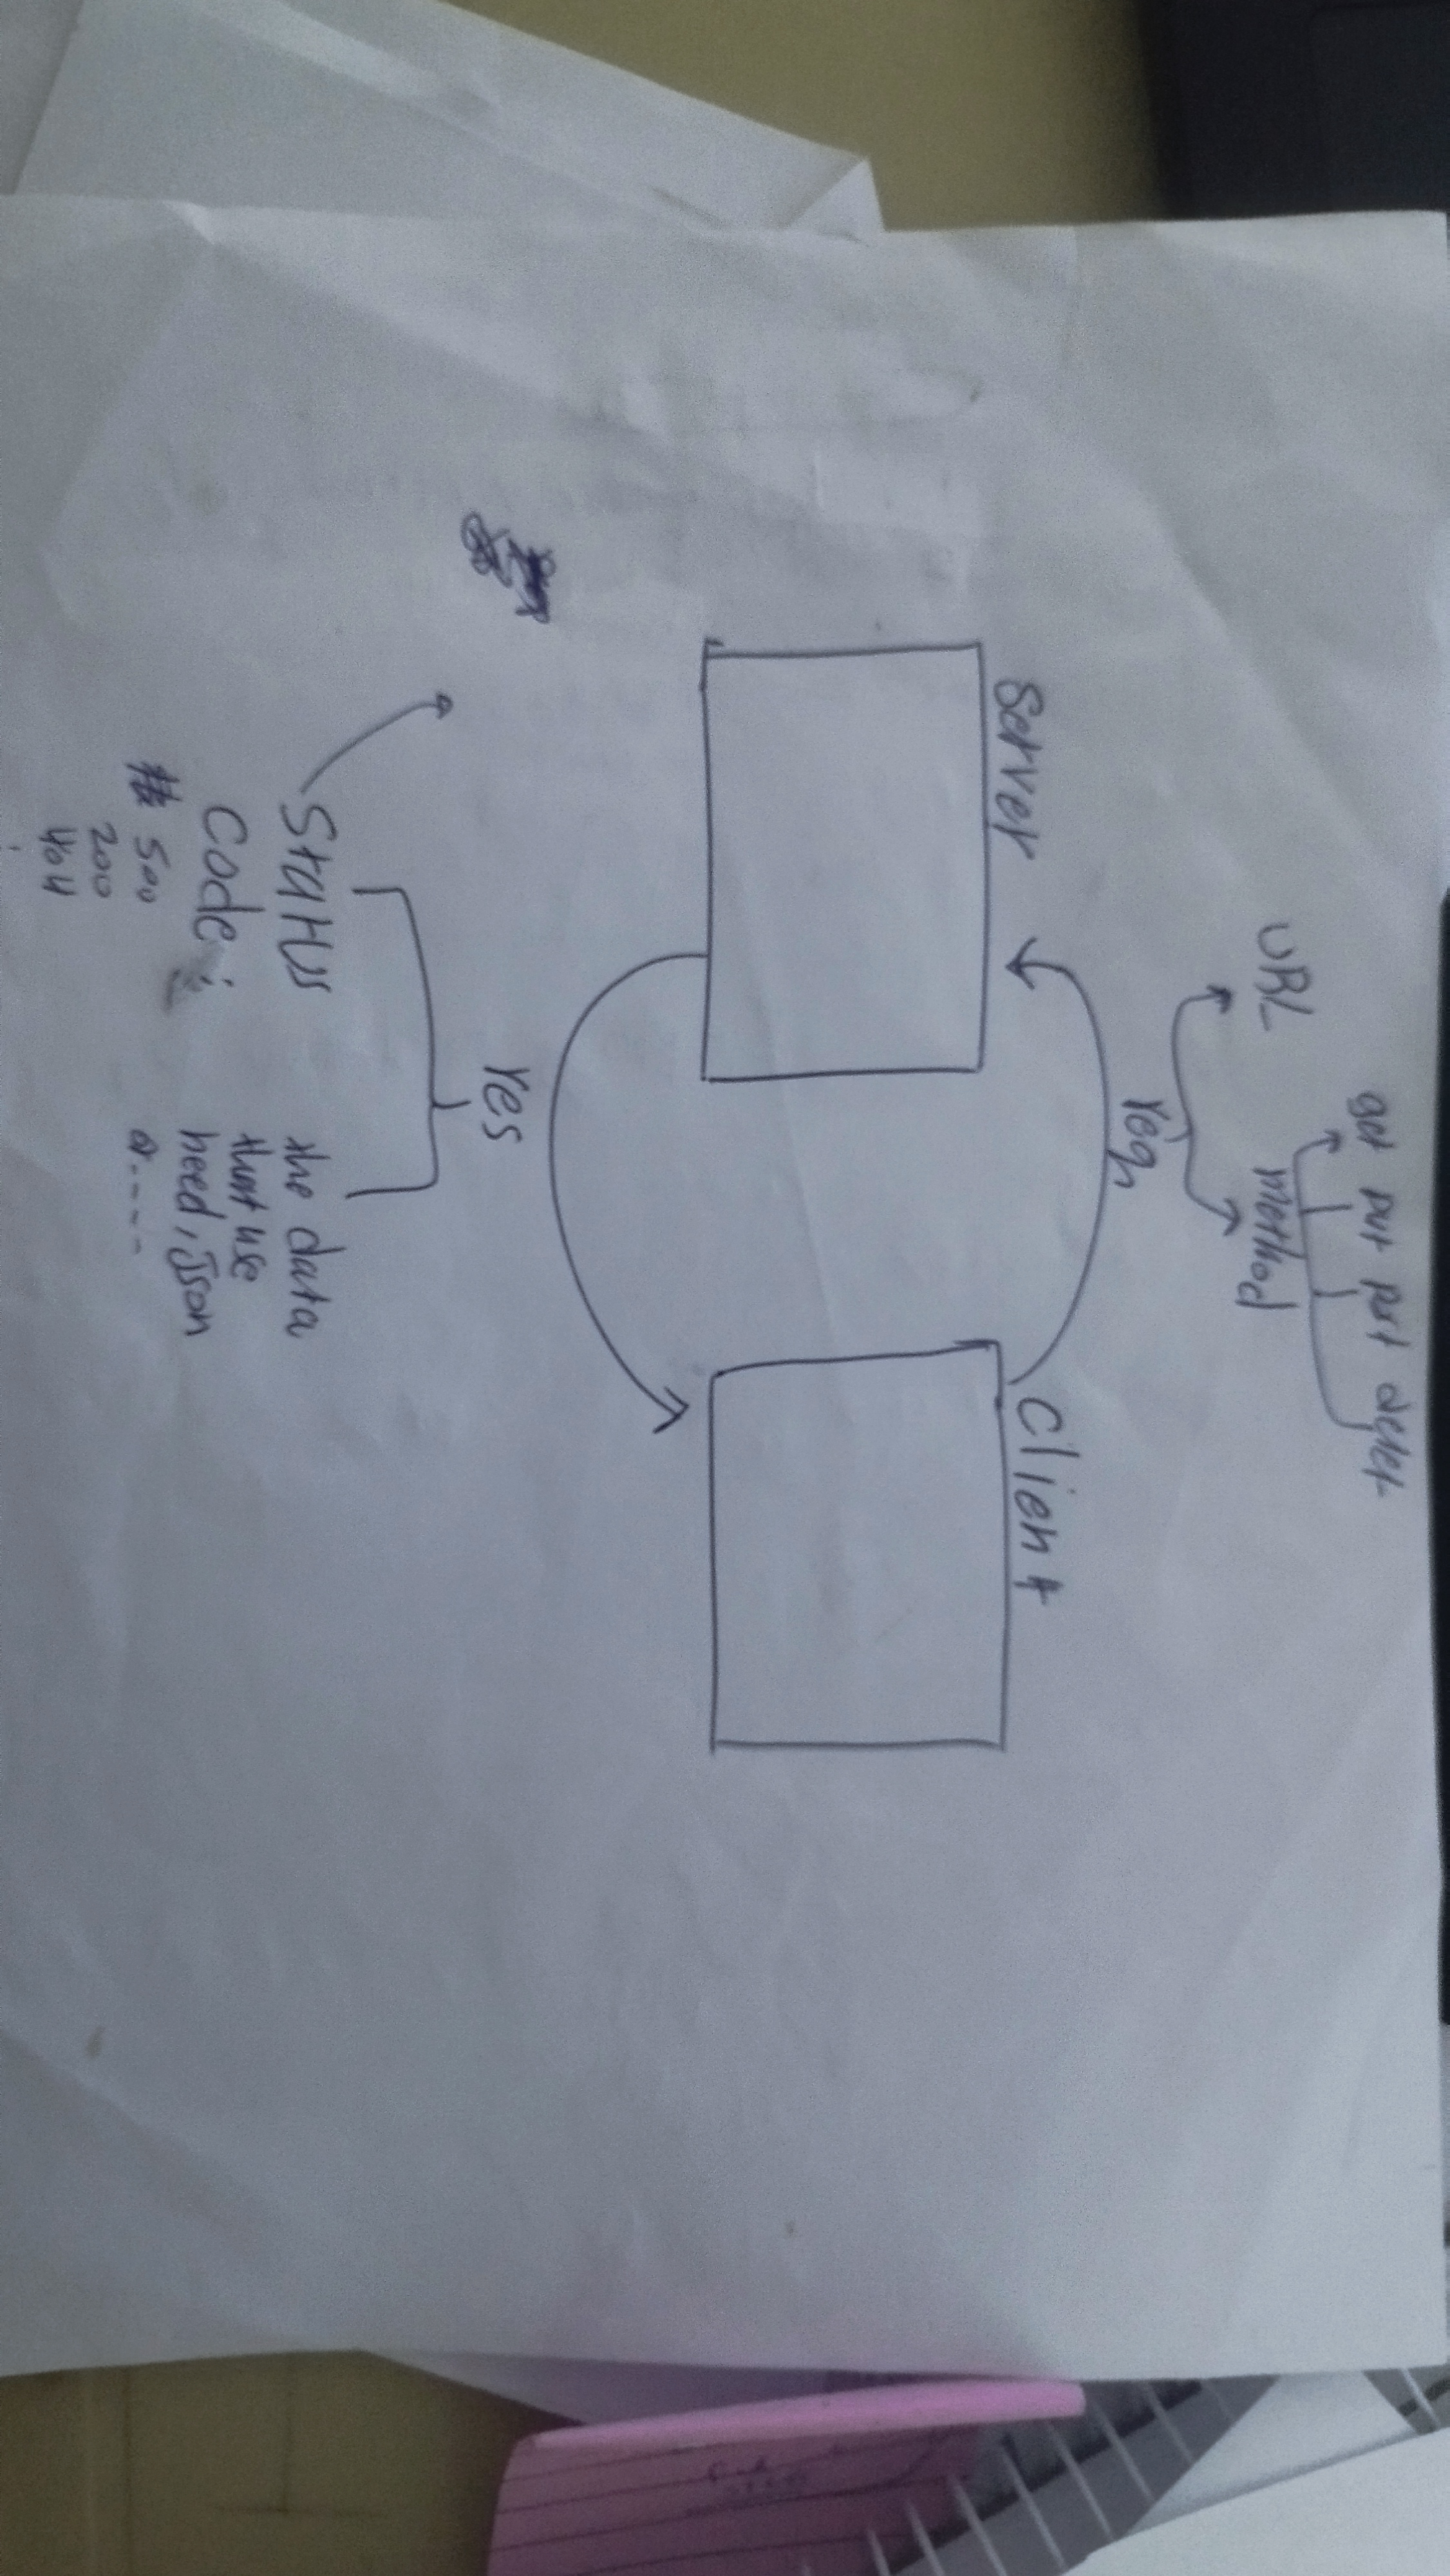 get put post delet
URL
method
req
Server
Client
res
Status
Code :
500
200
404
the data
that use
need, Json